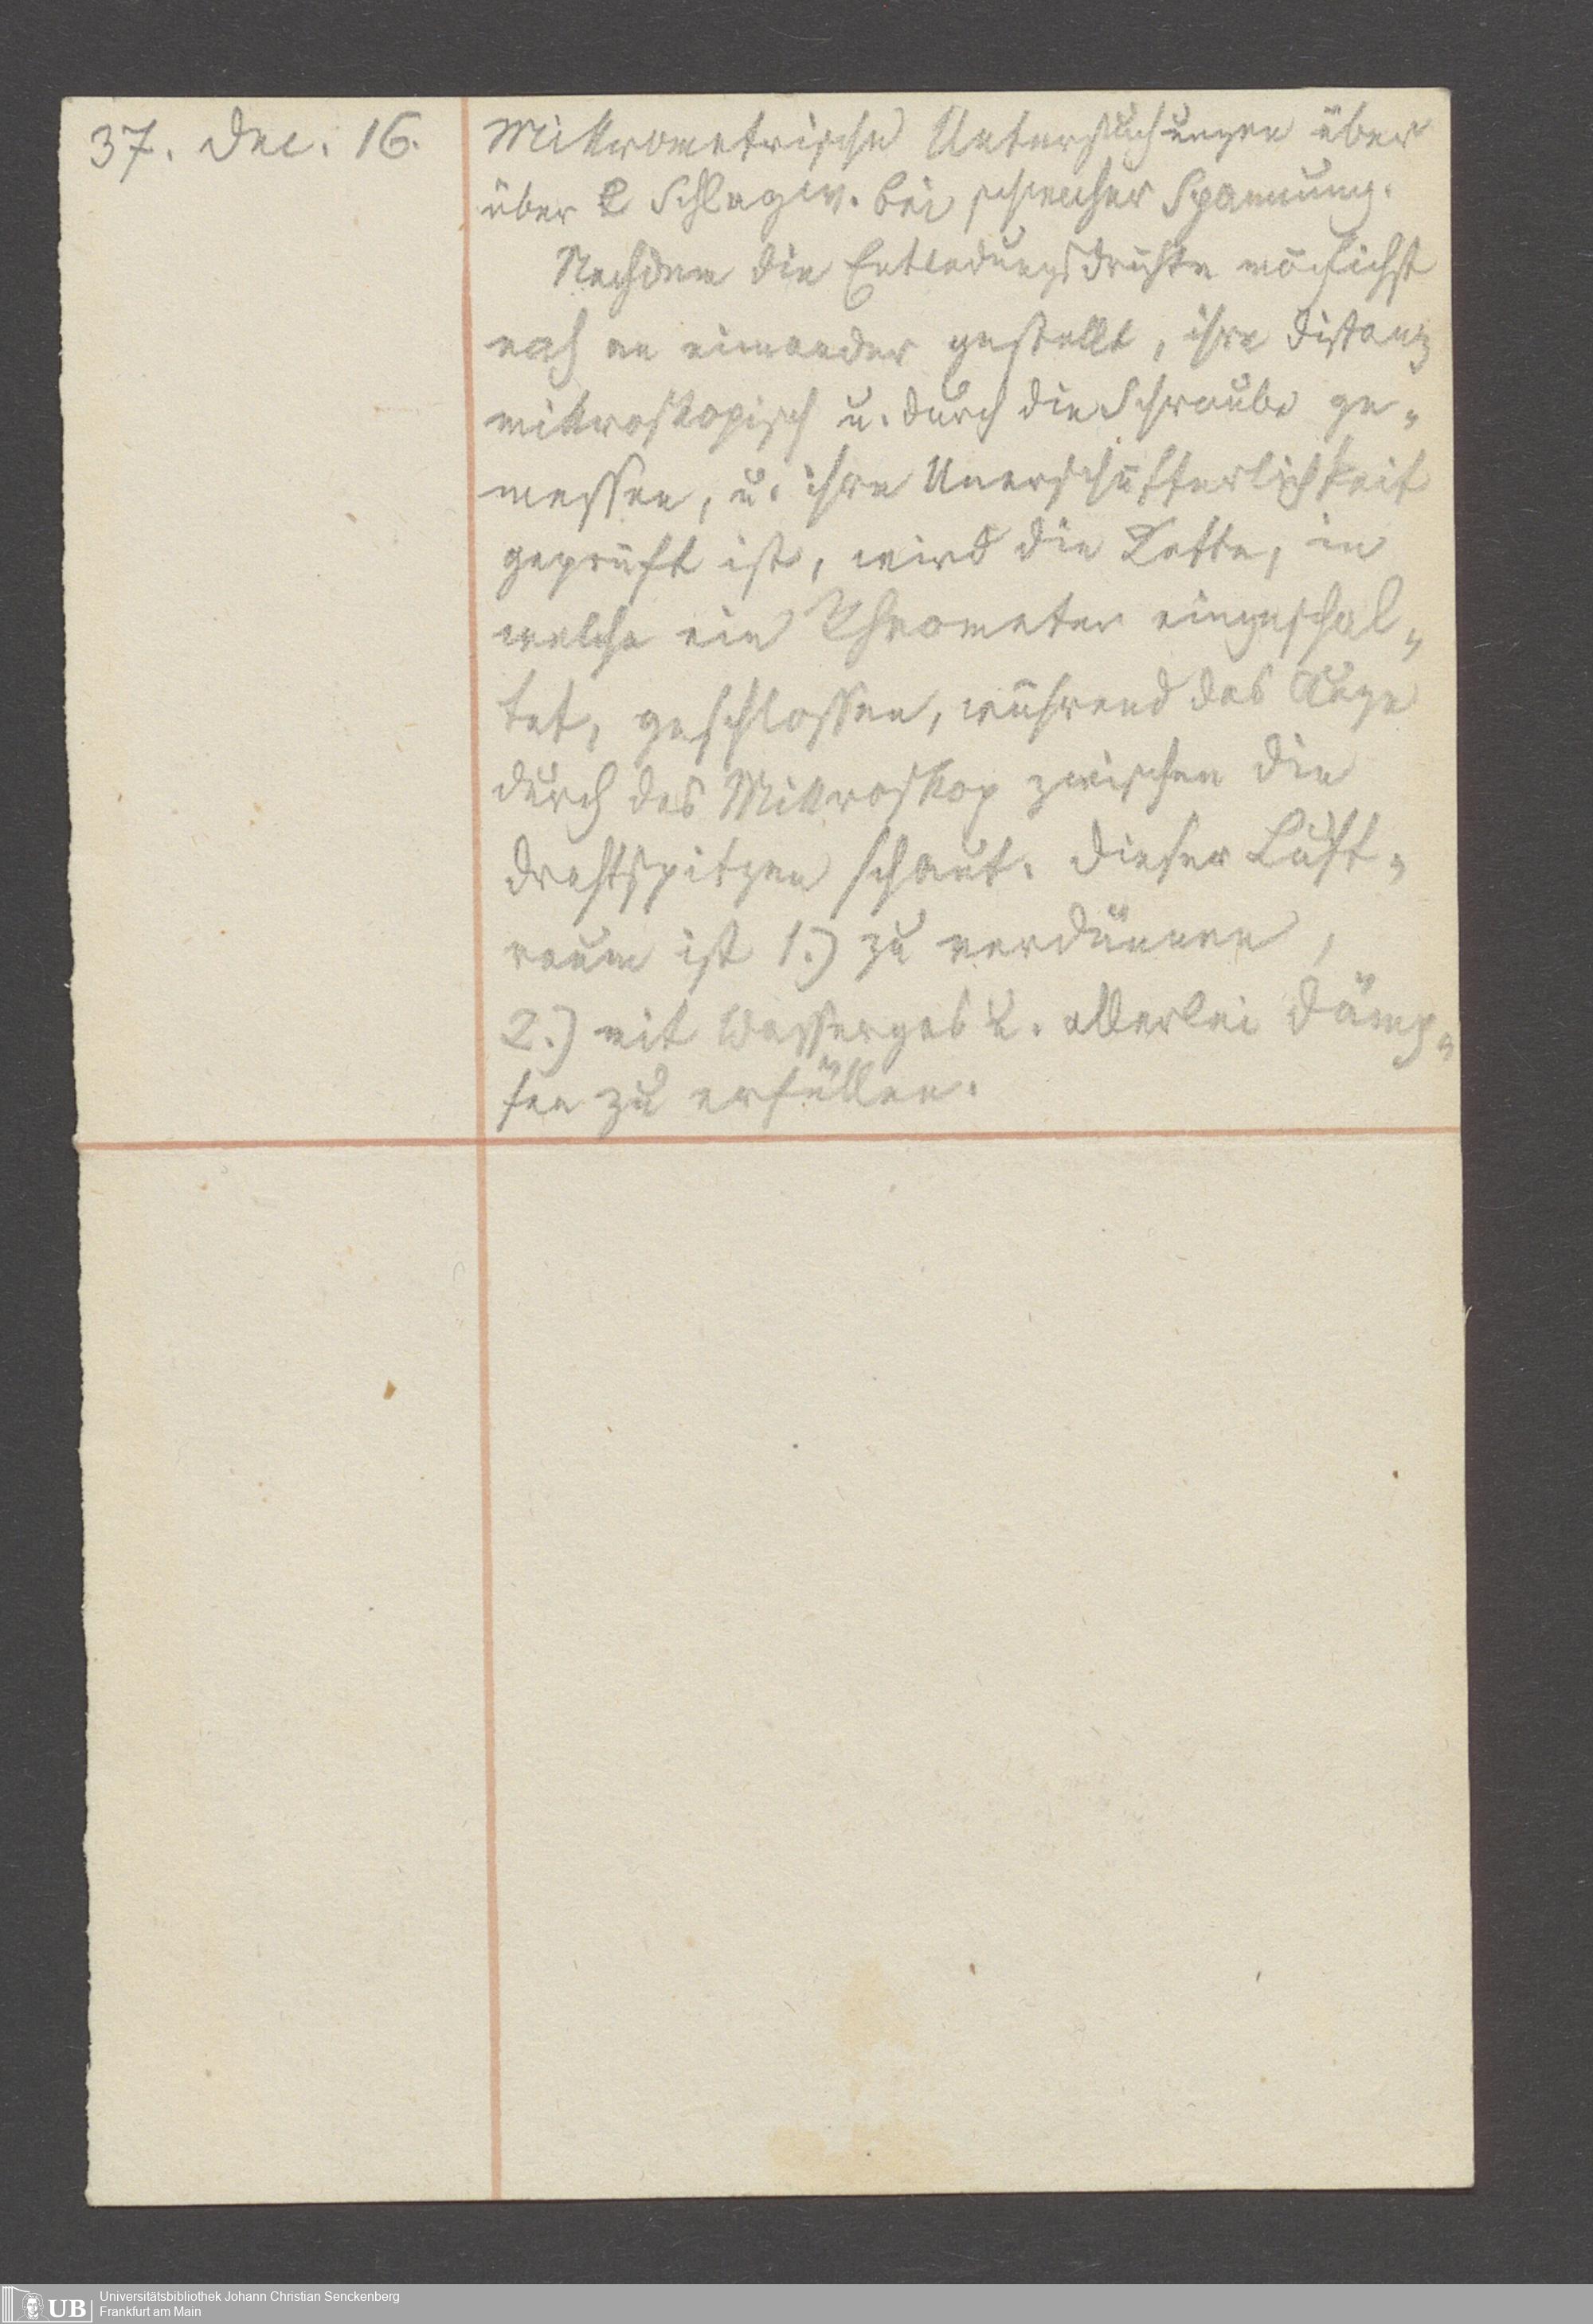 37. Dec. 16.
Mikrometrische Untersuchungen über
über e Schlagw. bei schwacher Spannung.
Nachdem die Entladungsdrähte möglichst
nah an einander gestellt, ihre Distanz
mikroskopisch u. durch die Schraube ge-
messen, u. ihre Unerschütterlichkeit
geprüft ist, wird die Kette, in
welche ein Rheometer eingeschal-
tet, geschlossen, während das Auge
durch das Mikroskop zwischen die
Drahtspitzen schaut. Dieser Luft-
raum ist 1.) zu verdünnen,
2.) mit Wassergas u. allerlei Dämp-
fen zu erfüllen.
UB
Universitätsbibliothek Johann Christian Senckenberg
Frankfurt am Main